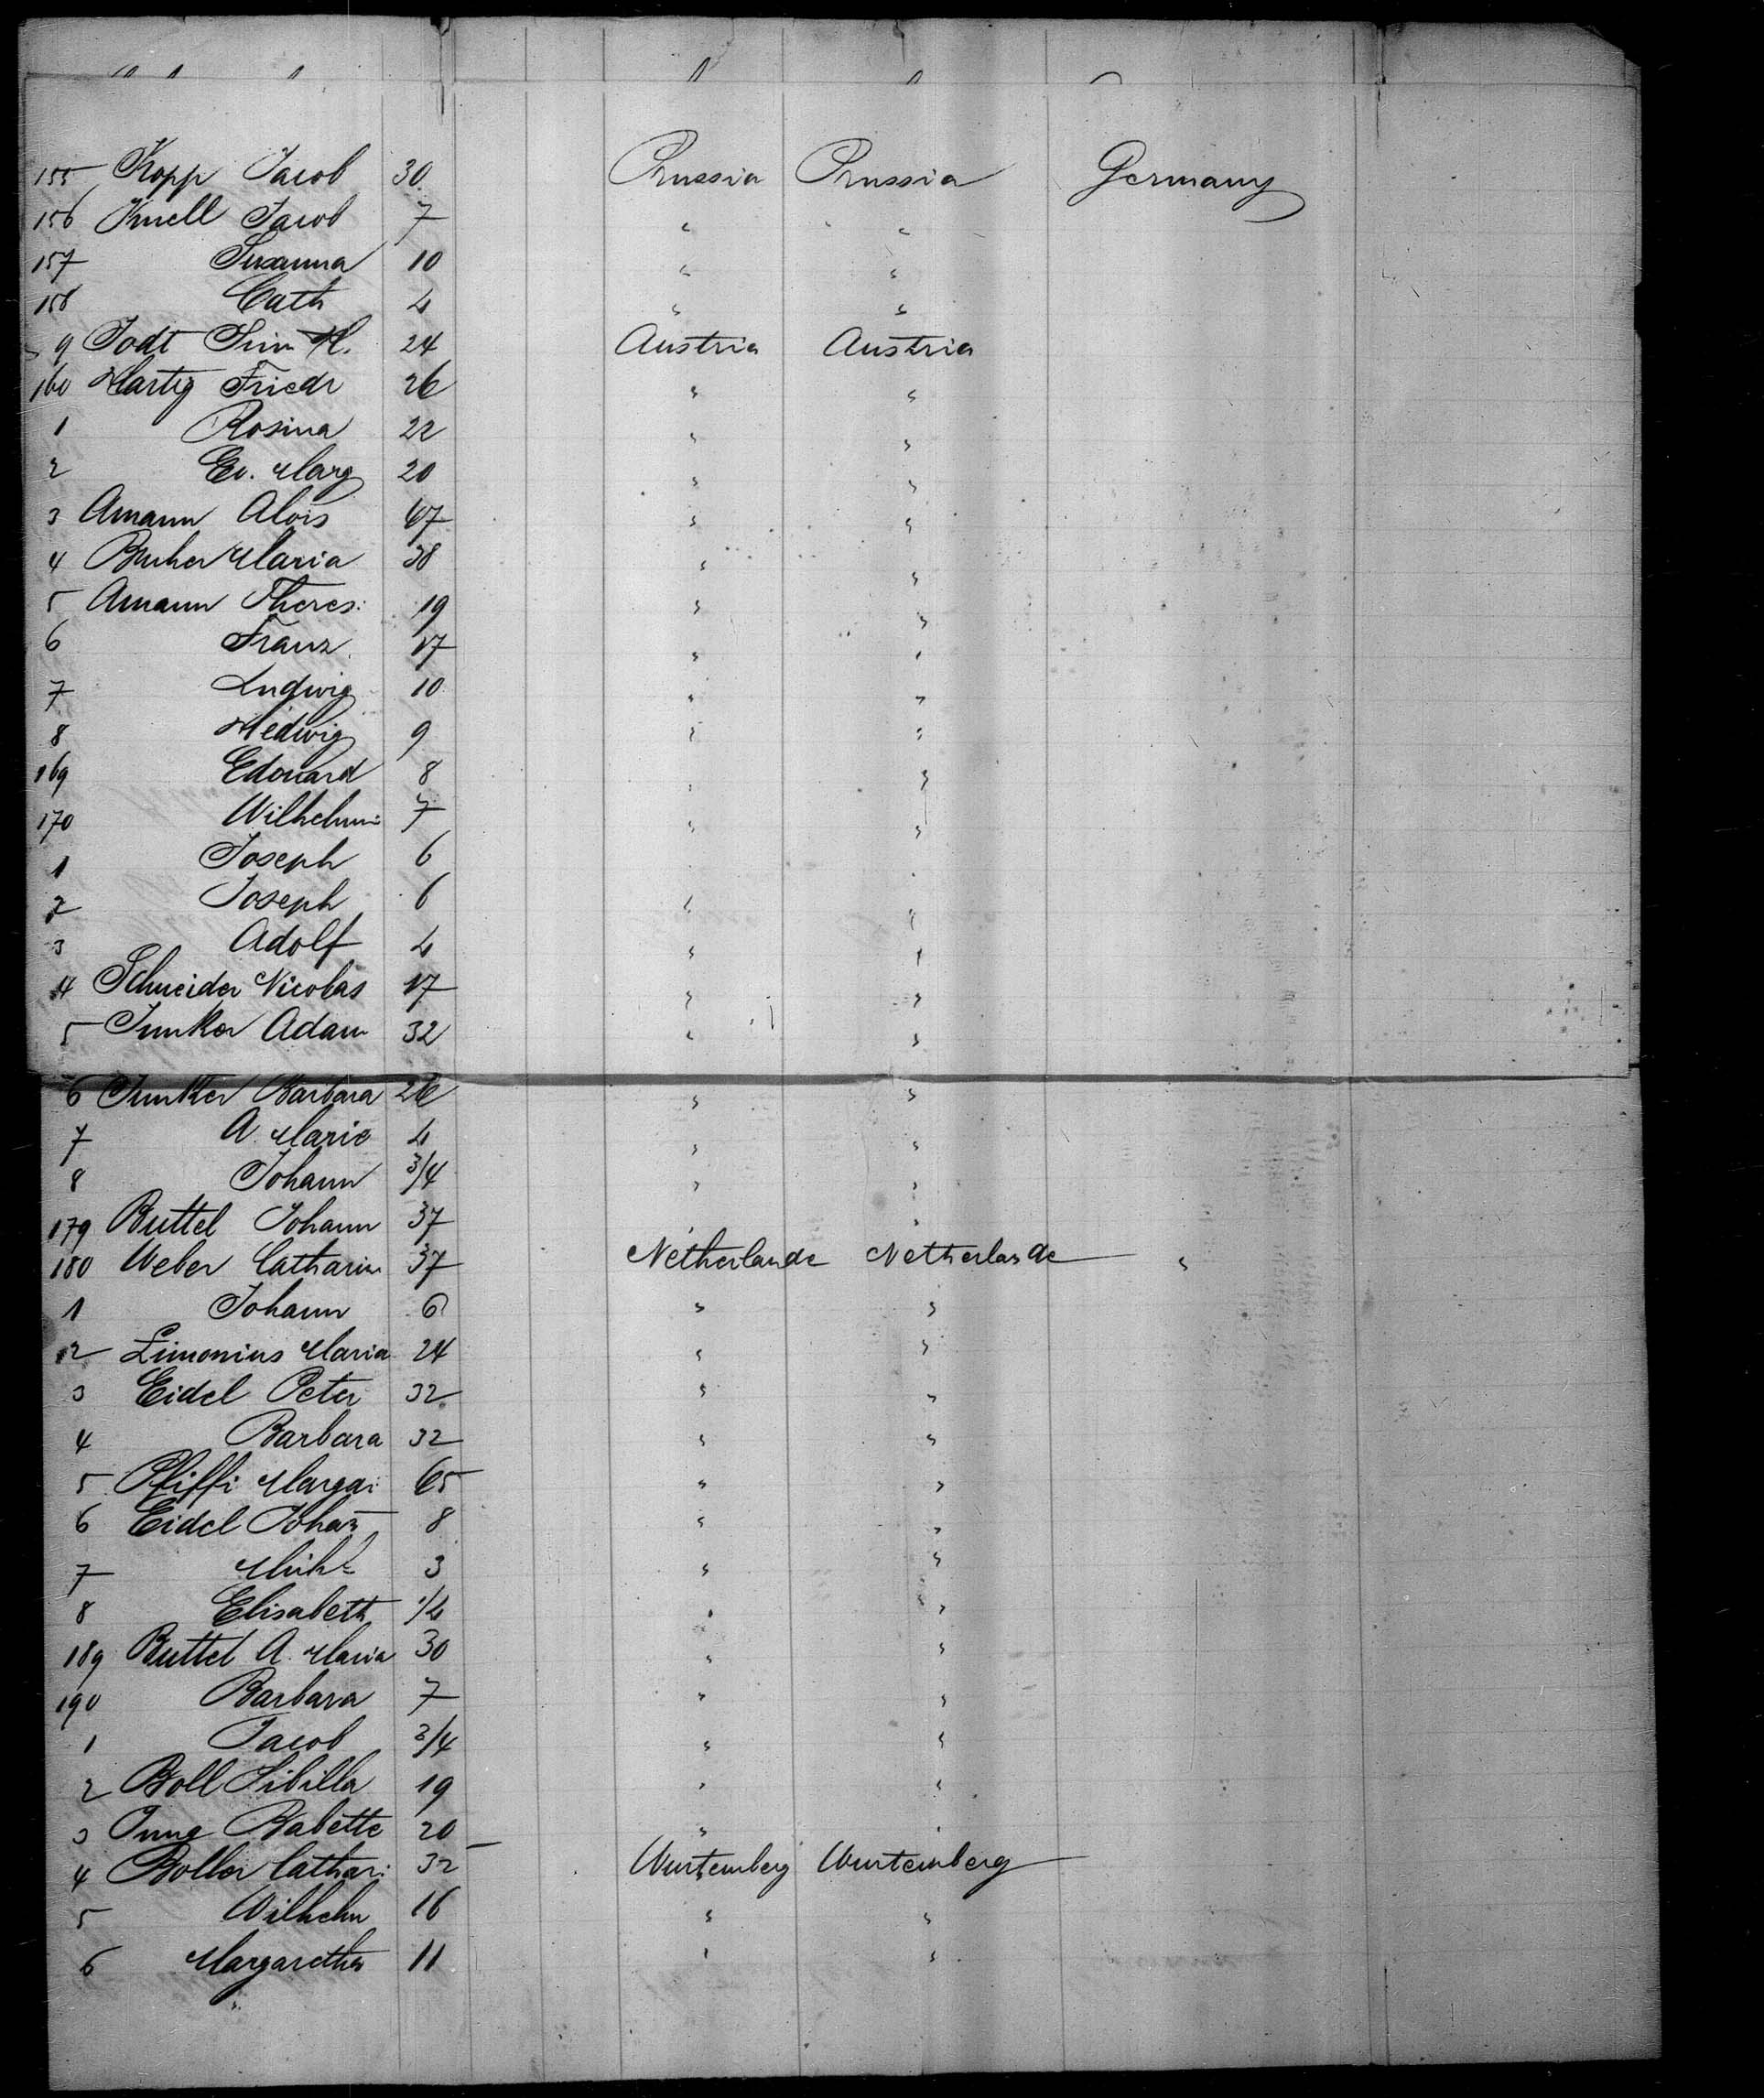 155 Kopp Jacob 30 Prussia Prussia Germany
156 Knell Jacob 7 " "
157 Susanna 10 " "
158 Cath 4 " "
9 Jodt H. 24 Austria Austria
160 Hartig Friedr 26 " "
1 Rosina 22 " "
2 Ev. Marg 20 " "
3 Amann Alois 47 " "
4 Maria 38 " "
5 Amann Theres: 19 " "
6 Franz 17 " "
7 Ludwig 10 " "
8 Hedwig 9 " "
169 Edouard 8 " "
170 Wilhelm: 7 " "
1 Joseph 6 " "
2 Joseph 6 " "
3 Adolf 4 " "
4 Schneider Nicolas 17 " "
5 Junker Adam 32 " "
6 Junker Barbara 26 " "
7 A. Marie 4 " "
8 Johann 3/4 " "
179 Buttel Johann 37 " "
180 Weber Catharin 37 Netherlande Netherlande "
1 Johann 6 " "
2 Limonius Maria 24 " "
3 Eidel Peter 32 " "
4 Barbara 32 " "
5 Pfiffi Margar: 65 " "
6 Eidel Johan 8 " "
7 Mich 3 " "
8 Elisabeth 1/4 " "
189 Buttel A. Maria 30 " "
190 Barbara 7 " "
1 Jacob 3/4 " "
2 Boll Sibilla 19 " "
3 Jung Babette 20 " "
4 Boller Cathar: 32 Wurtemberg Wurtemberg
5 Wilhelm 16 " "
6 Margaretha 11 " "